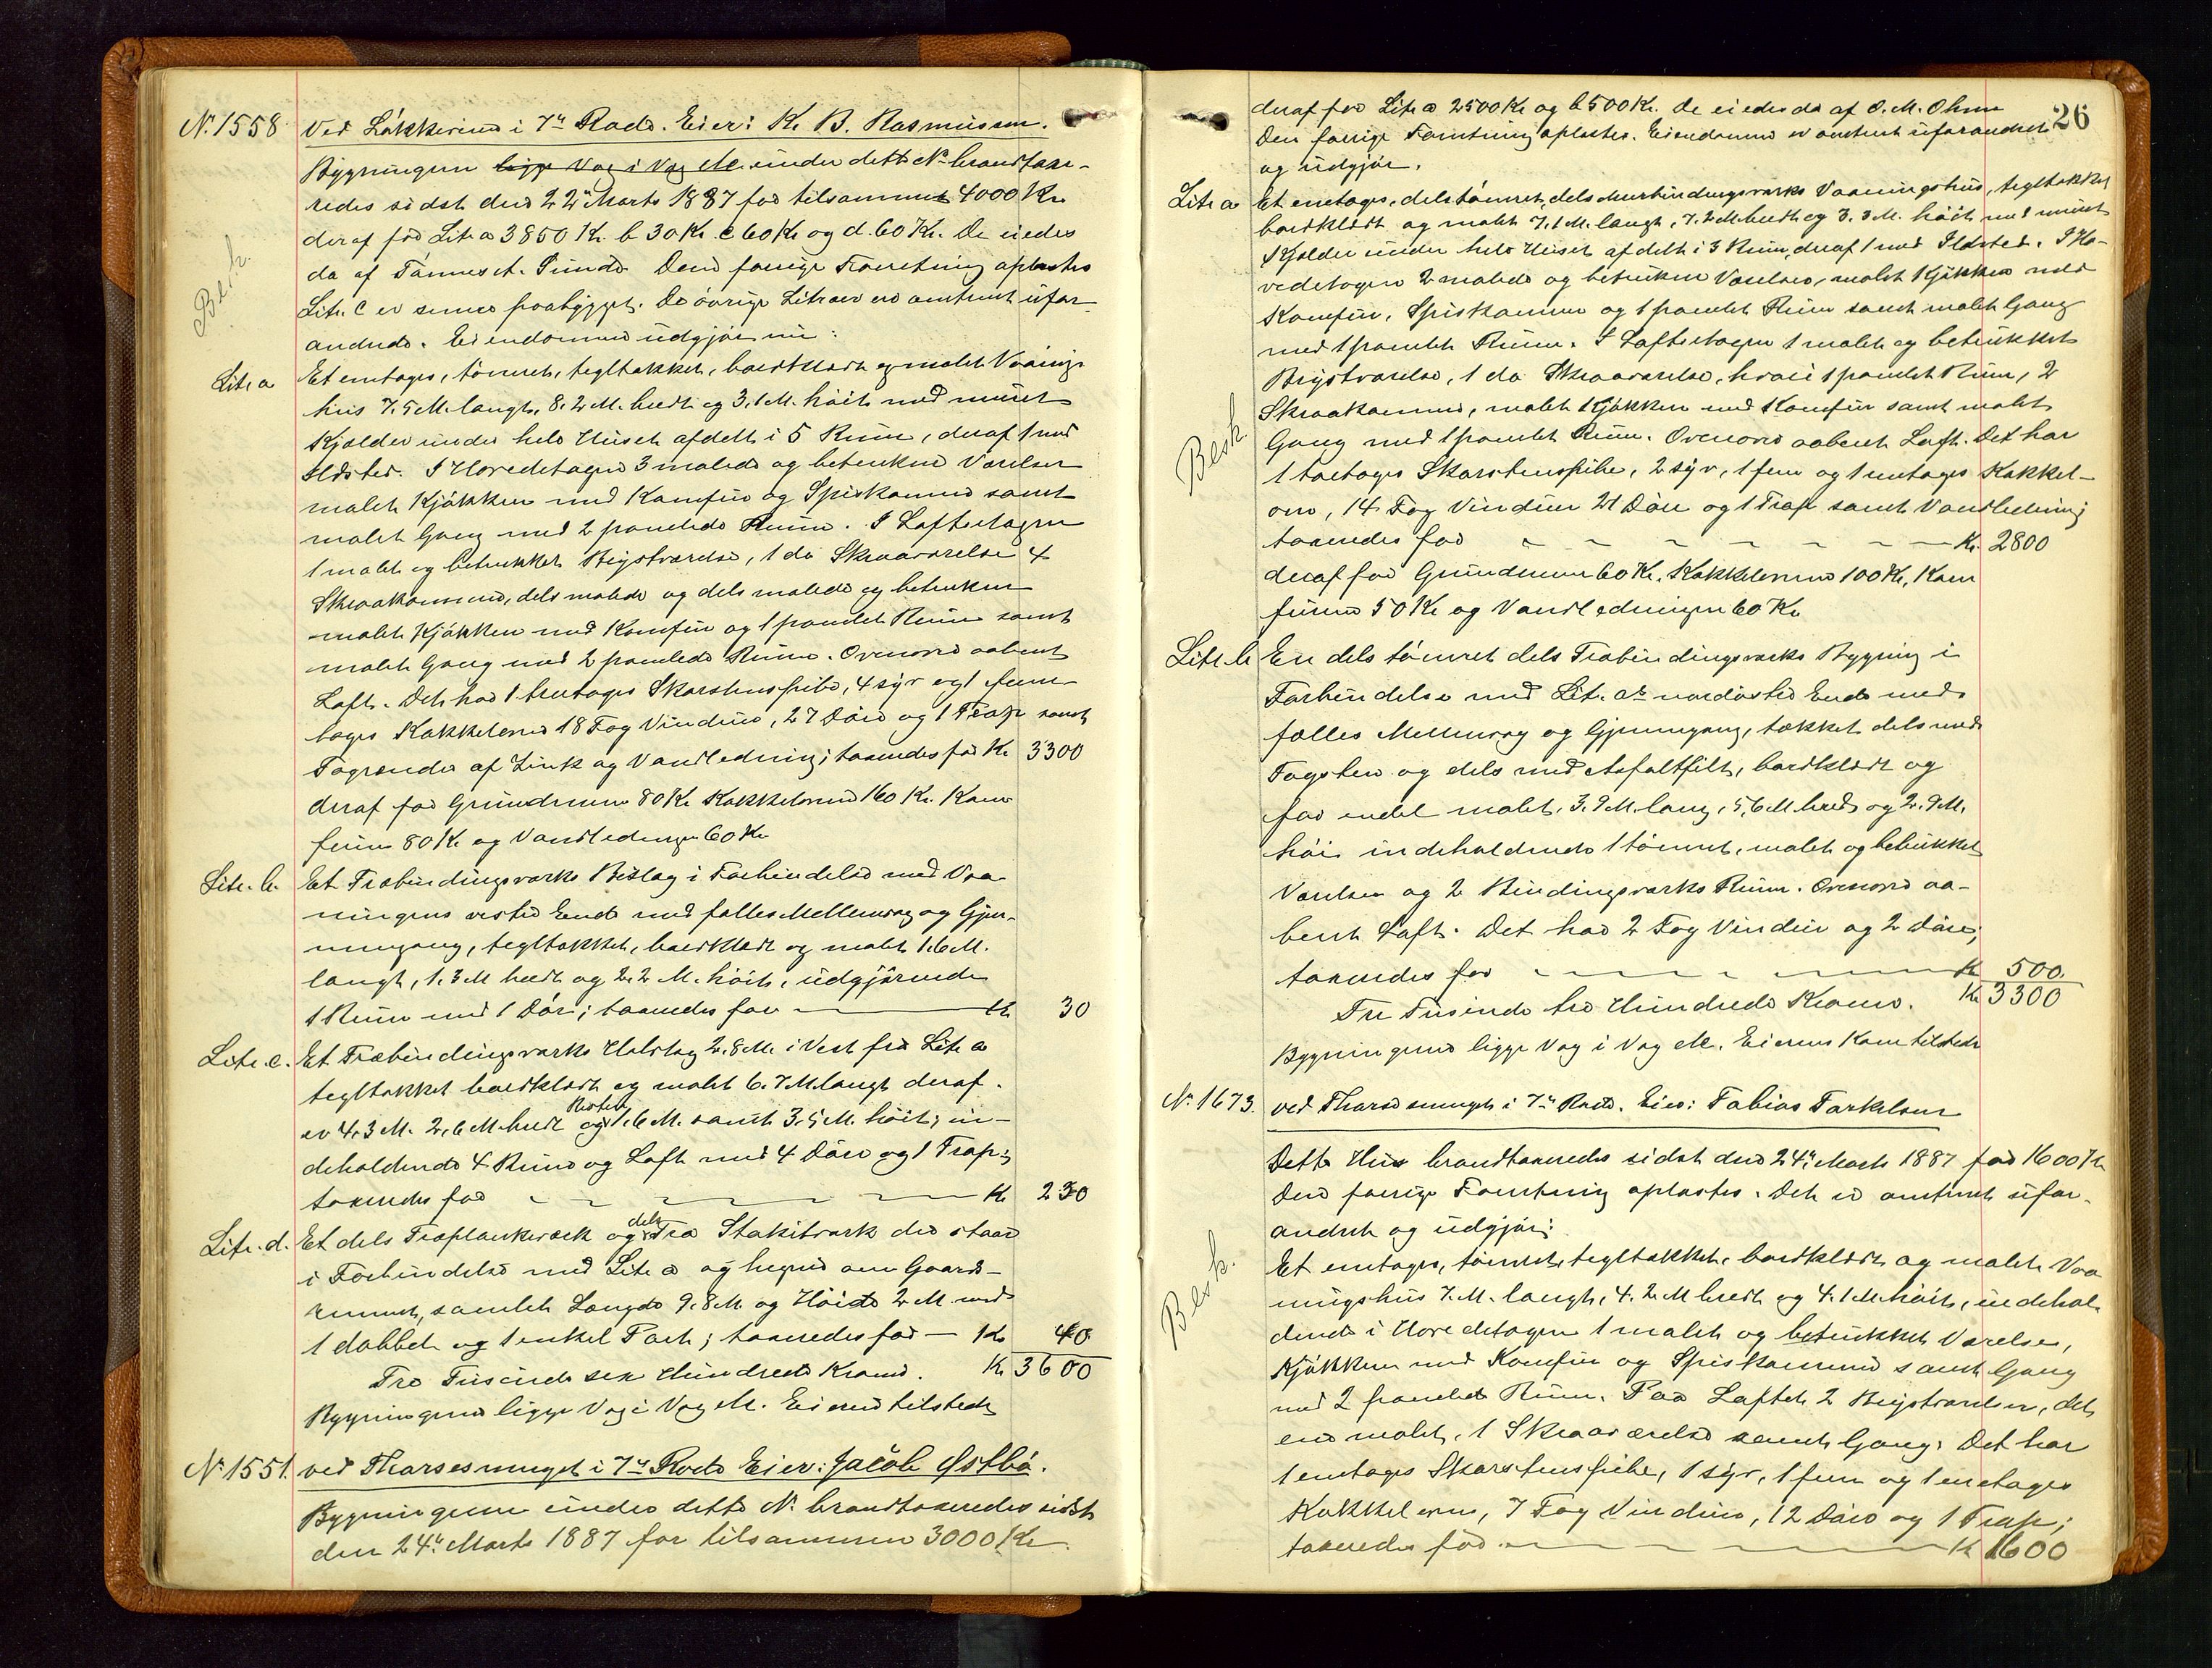 N. 1558. Ved Løkkeveien i 7de Rode. Eier: K. B. Rasmussen.
Bygningerne ligge Vag i Vag M. under dette No. brandtaxe-
redes sidst den 22de Marts 1887 for tilsammen 4000 Kr
deraf for Litr a 3850 Kr. b 30 Kr. c 60 Kr og d. 60 Kr. De eiedes
da af Tønnes A. Sunde. Den forrige Forretning oplæstes
Litr. C er senere paabygget. De øvrige Litraer ere omtrent ufor-
andrede. Eiendommen udgjør nu:
Besk.
Litr. a Et enetages, tømret, tegltækket, bordklædt og malet Vaanings-
hus 7.5 M. langt, 8.2 M. bredt og 3.1 M. høit med muret
Kjælder under hele Huset afdelt i 5 Rum, deraf 1 med
Ildsted. I Hovedetagen 3 malede og betrukne Værelser
malet Kjøkken med Komfur og Spiskammer samt
malet Gang med 2 panelede Rum. I Loftsetagen
1 malet og betrukket Kvistværelse, 1 do Skraaværelse 4
Skraakammere, dels malede og dels malede og betrukne
malet Kjøkken med Komfur og 1 panelet Rum samt
malet Gang med 2 panelede Rum. Ovenover aabent
Loft. Det har 1 treetages Skorstenspibe, 4 syv og 1 fem-
tages Kakkelovne 18 Fag Vinduer, 27 Døre og 1 Trap samt
Tagrender af Zink og Vandledning; taxeredes for Kr 3300
deraf for Grundmuren 80 Kr Kakkelovnene 160 Kr. Kom-
furene 80 Kr og Vandledningen 60 Kr
Litr. b. Et Træbindingsværks Bislag i Forbindelse med Vaa-
ningens vestre Ende med fælles Mellemvæg og Gjen-
nemgang, tegltækket, bordklædt og malet 1.6 M.
langt, 1.3 M bredt og 2.2 M. høit, udgjørende
1 Rum med 1 Dør; taxeredes for Kr 30
Litr. c. Et Træbindingsværks Udslag 2.8 M. i Vest fra Litr a
tegltækket bordklædt og malet 6.7 M langt deraf
er 4.3 M. 2.6 M bredt og Resten 1.6 M. samt 3.5 M. høit; in-
deholdende 4 Rum og Loft med 4 Døre og 1 Trap;
taxeredes for Kr 230
Litr. d. Et dels Træplankeværk og dels Træ Stakitværk der staar
i Forbindelse med Litr a og hegner om Gaards-
rummet, samlet Længde 9.8 M. og Høide 2 M. med
1 dobbelt og 1 enkel Port; taxeredes for Kr 40
Tre Tusinde sex Hundrede Kroner. Kr 3600
Bygningerne ligge Vag i Vag M. Eieren tilstede
N. 1551. ved Tharsesmuget i 7de Rode Eier: Jacob Østbø.
Bygningerne under dette No. brandtaxeredes sidst
den 24de Marts 1887 for tilsammen 3000 Kr
26
deraf for Litr a 2500 Kr og b 500 Kr. De eiedes da af O. M. Ohm
Den forrige Forretning oplæstes. Eiendommen er omtrent uforandret
og udgjør.
Litr a Et enetages, dels tømret, dels Murbindingsværks Vaaningshus, tegltækket
bordklædt og malet 7.1 M. langt, 7.2 M. bredt og 3.3 M. høit med muret
Kjælder under hele Huset afdelt i 3 Rum, deraf 1 med Ildsted. I Ho-
vedetagen 2 malede og betrukne Værelser, malet Kjøkken med
Komfur, Spiskammer og 1 panelet Rum samt malet Gang
med 1 panelet Rum. I Loftsetagen 1 malet og betrukket
Kvistværelse, 1 do Skraaværelse, hvori 1 panelet Rum, 2
Skraakammere, malet Kjøkken med Komfur samt malet
Besk
Gang med 1 panelet Rum. Ovenover aabent Loft. Det har
1 toetages Skorstenspibe, 2 syv, 1 fem og 1 enetages Kakkel-
ovn, 14 Fag Vinduer 21 Døre og 1 Trap samt Vandledning;
taxeredes for Kr. 2800
deraf for Grundmuren 60 Kr. Kakkelovnene 100 Kr, Kom
furene 50 Kr og Vandledningen 60 Kr
Litr. b En dels tømret dels Træbindingsværks Bygning i
Forbindelse med Lit. a's nordøstre Ende med
fælles Mellemvæg og Gjennemgang, tækket dels med
Tagsten og dels med Asfaltfilt, bordklædt og
for endel malet, 3.9 M. lang, 5.6 M bred og 2.9 M.
høi indeholdende 1 tømret, malet og betrukket
Værelse og 2 Bindingsværks Rum. Ovenover aa-
bent Loft. Det har 2 Fag Vinduer og 2 Døre;
taxeredes for Kr 500.
Tre Tusinde tre Hundrede Kroner. Kr 3300
Bygningerne ligge Vag i Vag M. Eieren kom tilstede
N. 1673. ved Tharsesmuget i 7de Rode. Eier: Tobias Torkelsen
Dette Hus brandtaxeredes sidst den 24de Marts 1887 for 1600 Kr
Den forrige Forretning oplæstes. Det er omtrent ufor-
andret og udgjør:
Besk.
Et enetages, tømret, tegltækket, bordklædt og malet Vaa
ningshus 7. M. langt, 4.2 M bredt og 4.1 M. høit, indehol-
dende i Hovedetagen 1 malet og betrukket Værelse,
Kjøkken med Komfur og Spiskammer samt Gang
med 2 panelede Rum. Paa Loftet 2 Kvistværelser, det
ene malet, 1 Skraaværelse samt Gang. Det har
1 enetages Skorstenspibe, 1 syv, 1 fem og 1 enetages
Kakkelovne, 7 Fag Vinduer, 12 Døre og 1 Trap;
taxeredes for Kr 1600